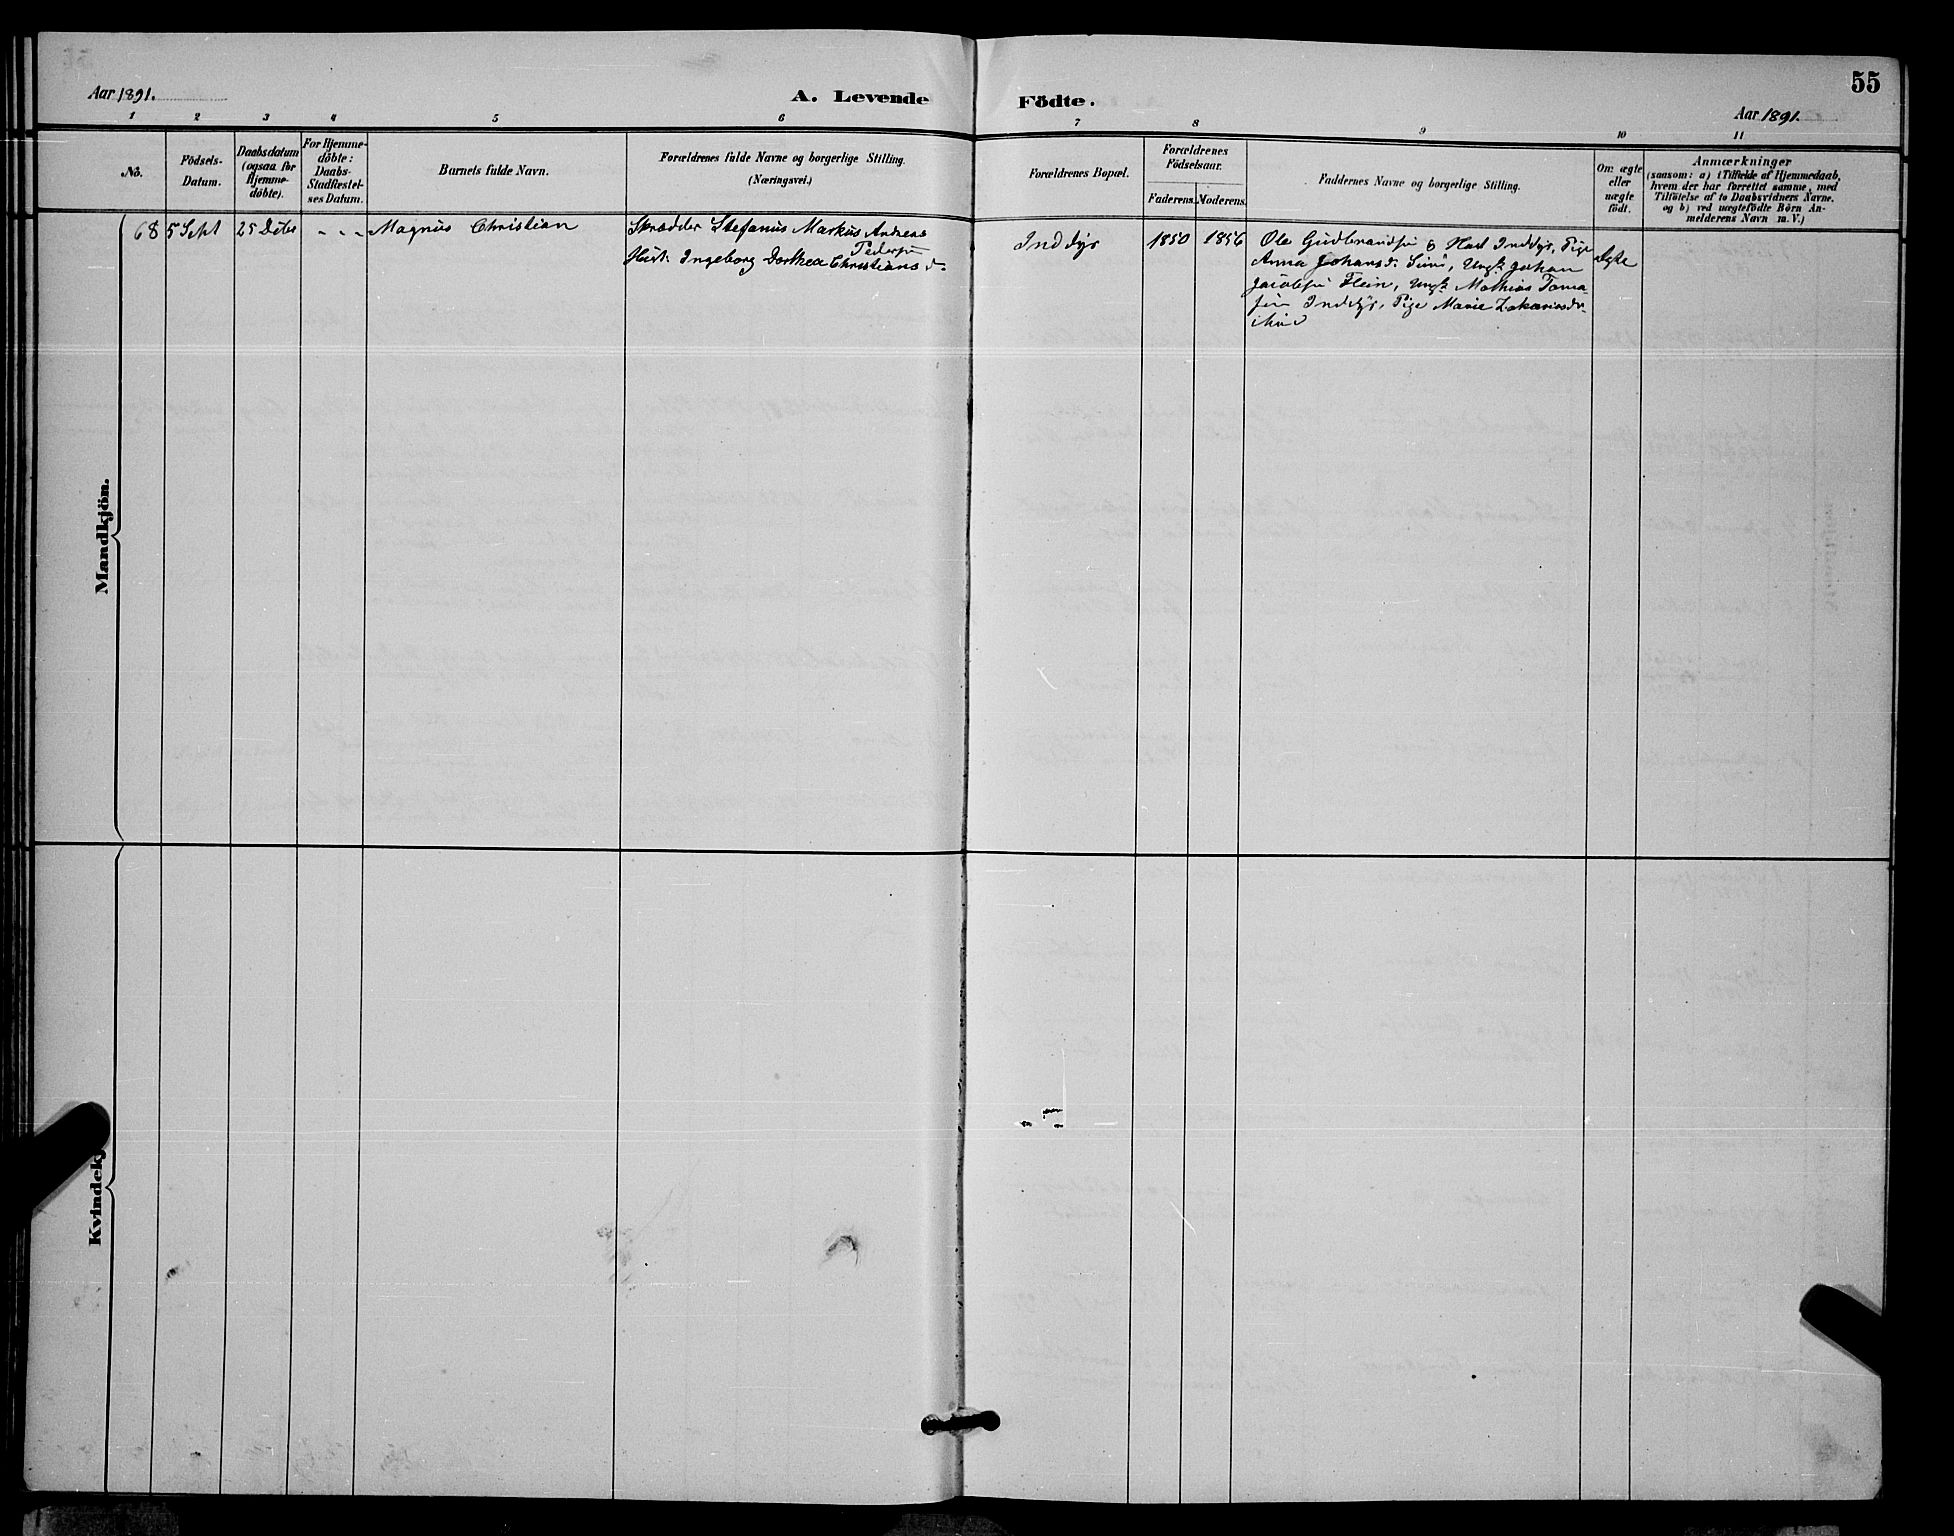 55
Aar 1891.
A. Levende Födte.
Aar 1891.
1 2 3 4 5 6 7 8 9 10 11
No.
Födsels-
Datum.
Daabsdatum
(ogsaa for
Hjemme-
döbte).
For Hjemme-
döbte:
Daabs-
Stadfæstel-
ses Datum.
Barnets fulde Navn.
Forældrenes fulde Navne og borgerlige Stilling.
(Næringsvei.)
Forældrenes Bopæl.
Forældrenes
Födselsaar.
Faderens. Moderens.
Faddernes Navne og borgerlige Stilling.
Om ægte
eller
uægte
födt.
Anmærkninger
(saasom: a) i Tilfælde af Hjemmedaab,
hvem der har forrettet samme, med
Tilföielse af to Daabsvidners Navne.
og b) ved uægtefödte Börn An-
melderens Navn m. V.)
Mandkjön.
68
5 Sept
25 Dcbr
- - -
Magnus Christian
Skrædder Stefanus Markus Andreas
Pedersen
Hust. Ingeborg Dorthea Christiansd.
Inddyr
1850
1856
Ole Gudbrandsen & Hust Inddyr, Pige
Anna Johansd. , Ungk Johan
Jacobsen Flein, Ungk Mathias Toma-
sen Inddyr, Pige Marie Zakariasdr
Ægte
Kvindekj